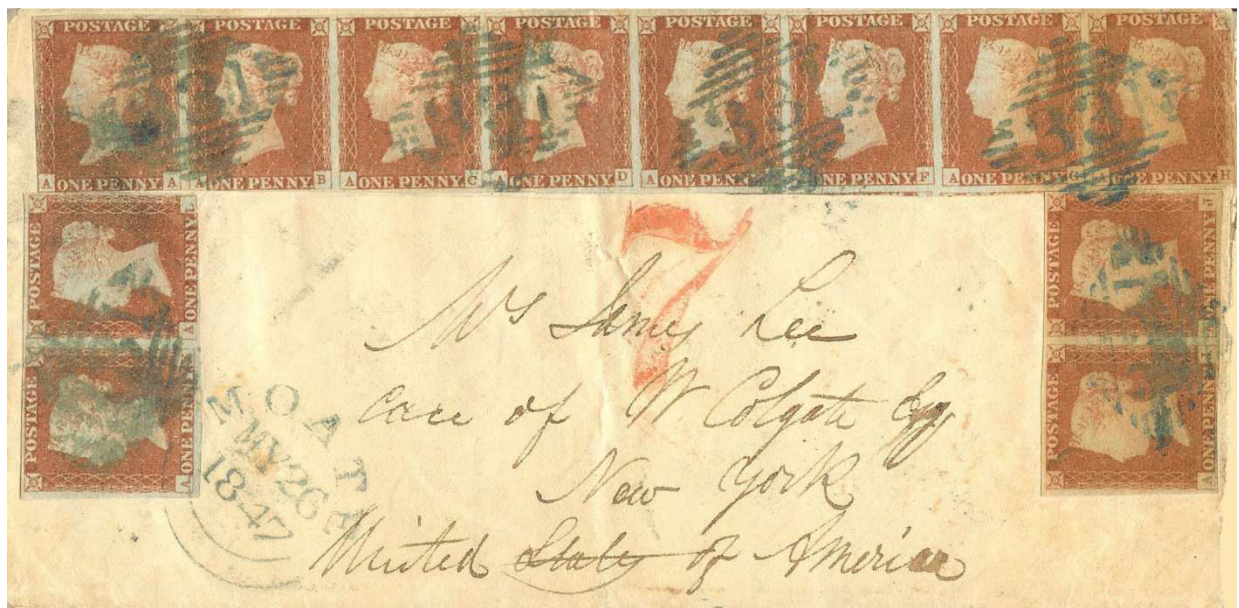 POSTAGE POSTAGE POSTAGE POSTAGE POSTAGE POSTAGE POSTAGE POSTAGE
A ONE PENNY A A ONE PENNY B A ONE PENNY C A ONE PENNY D A ONE PENNY ONE PENNY F A ONE PENNY G ONE PENNY H
POSTAGE
ONE PENNY A
POSTAGE
ONE PENNY A
POSTAGE
ONE PENNY J
POSTAGE
A ONE PENNY
7
Mrs James Lee
Care of W Colgate Esq
New York
United States of America
MOAT
MY 26
1847